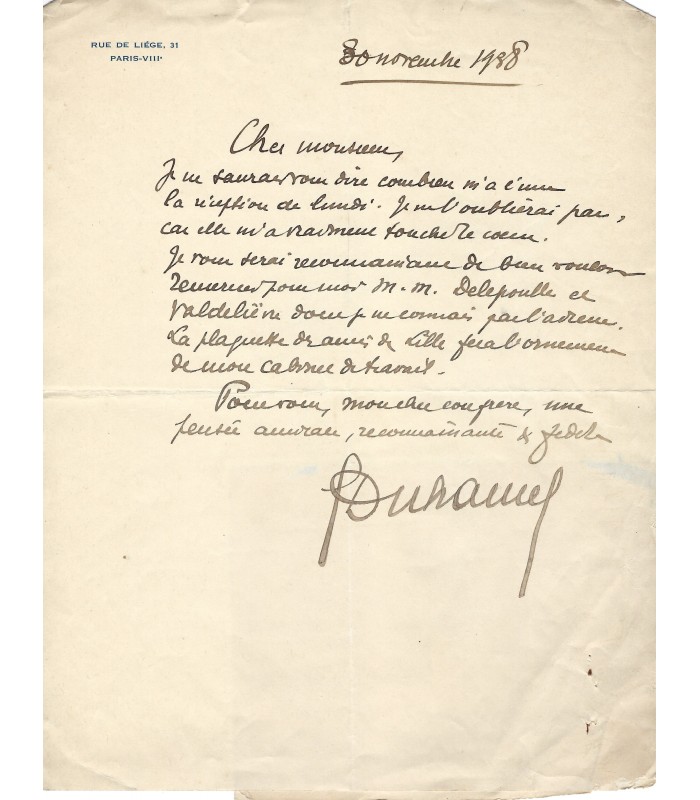 RUE DE LIÉGE, 31
PARIS-VIIIᵉ
30 novembre 1938
Cher monsieur,
Je ne saurais vous dire combien m'a ému
la réception de lundi. Je ne l'oublierai pas,
car elle m'a vraiment touché le cœur.
Je vous serai reconnaissant de bien vouloir
remercier pour moi M.M. Delepoulle et
Valdelièvre dont je ne connais pas l'adresse.
La plaquette des amis de Lille fera l'ornement
de mon cabinet de travail.
Pour vous, mon cher confrère, une
pensée amicale, reconnaissante & fidèle
GDuhamel